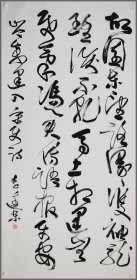 故園东望路漫漫雙袖龍
鍾淚不乾馬上相逢無
紙筆憑君傳語報平安
岑參逢入京使詩